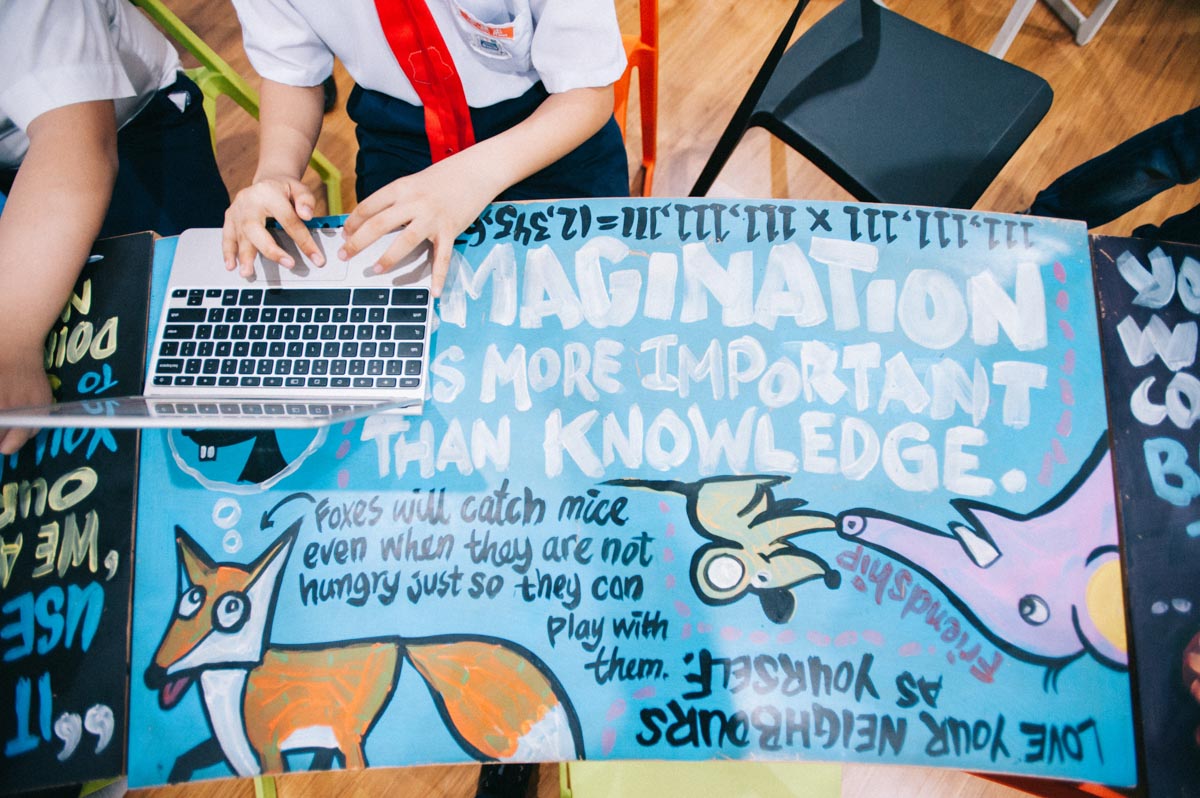 111,111,111 x 111,111,111=12,345,6
MAGINATION
S MORE IMPORTANT
THAN KNOWLEDGE.
Foxes will catch mice
even when they are not
hungry just so they can
play with
them.
Friendship
LOVE YOUR NEIGHBOURS
AS YOURSELF.
USE
IT
TO